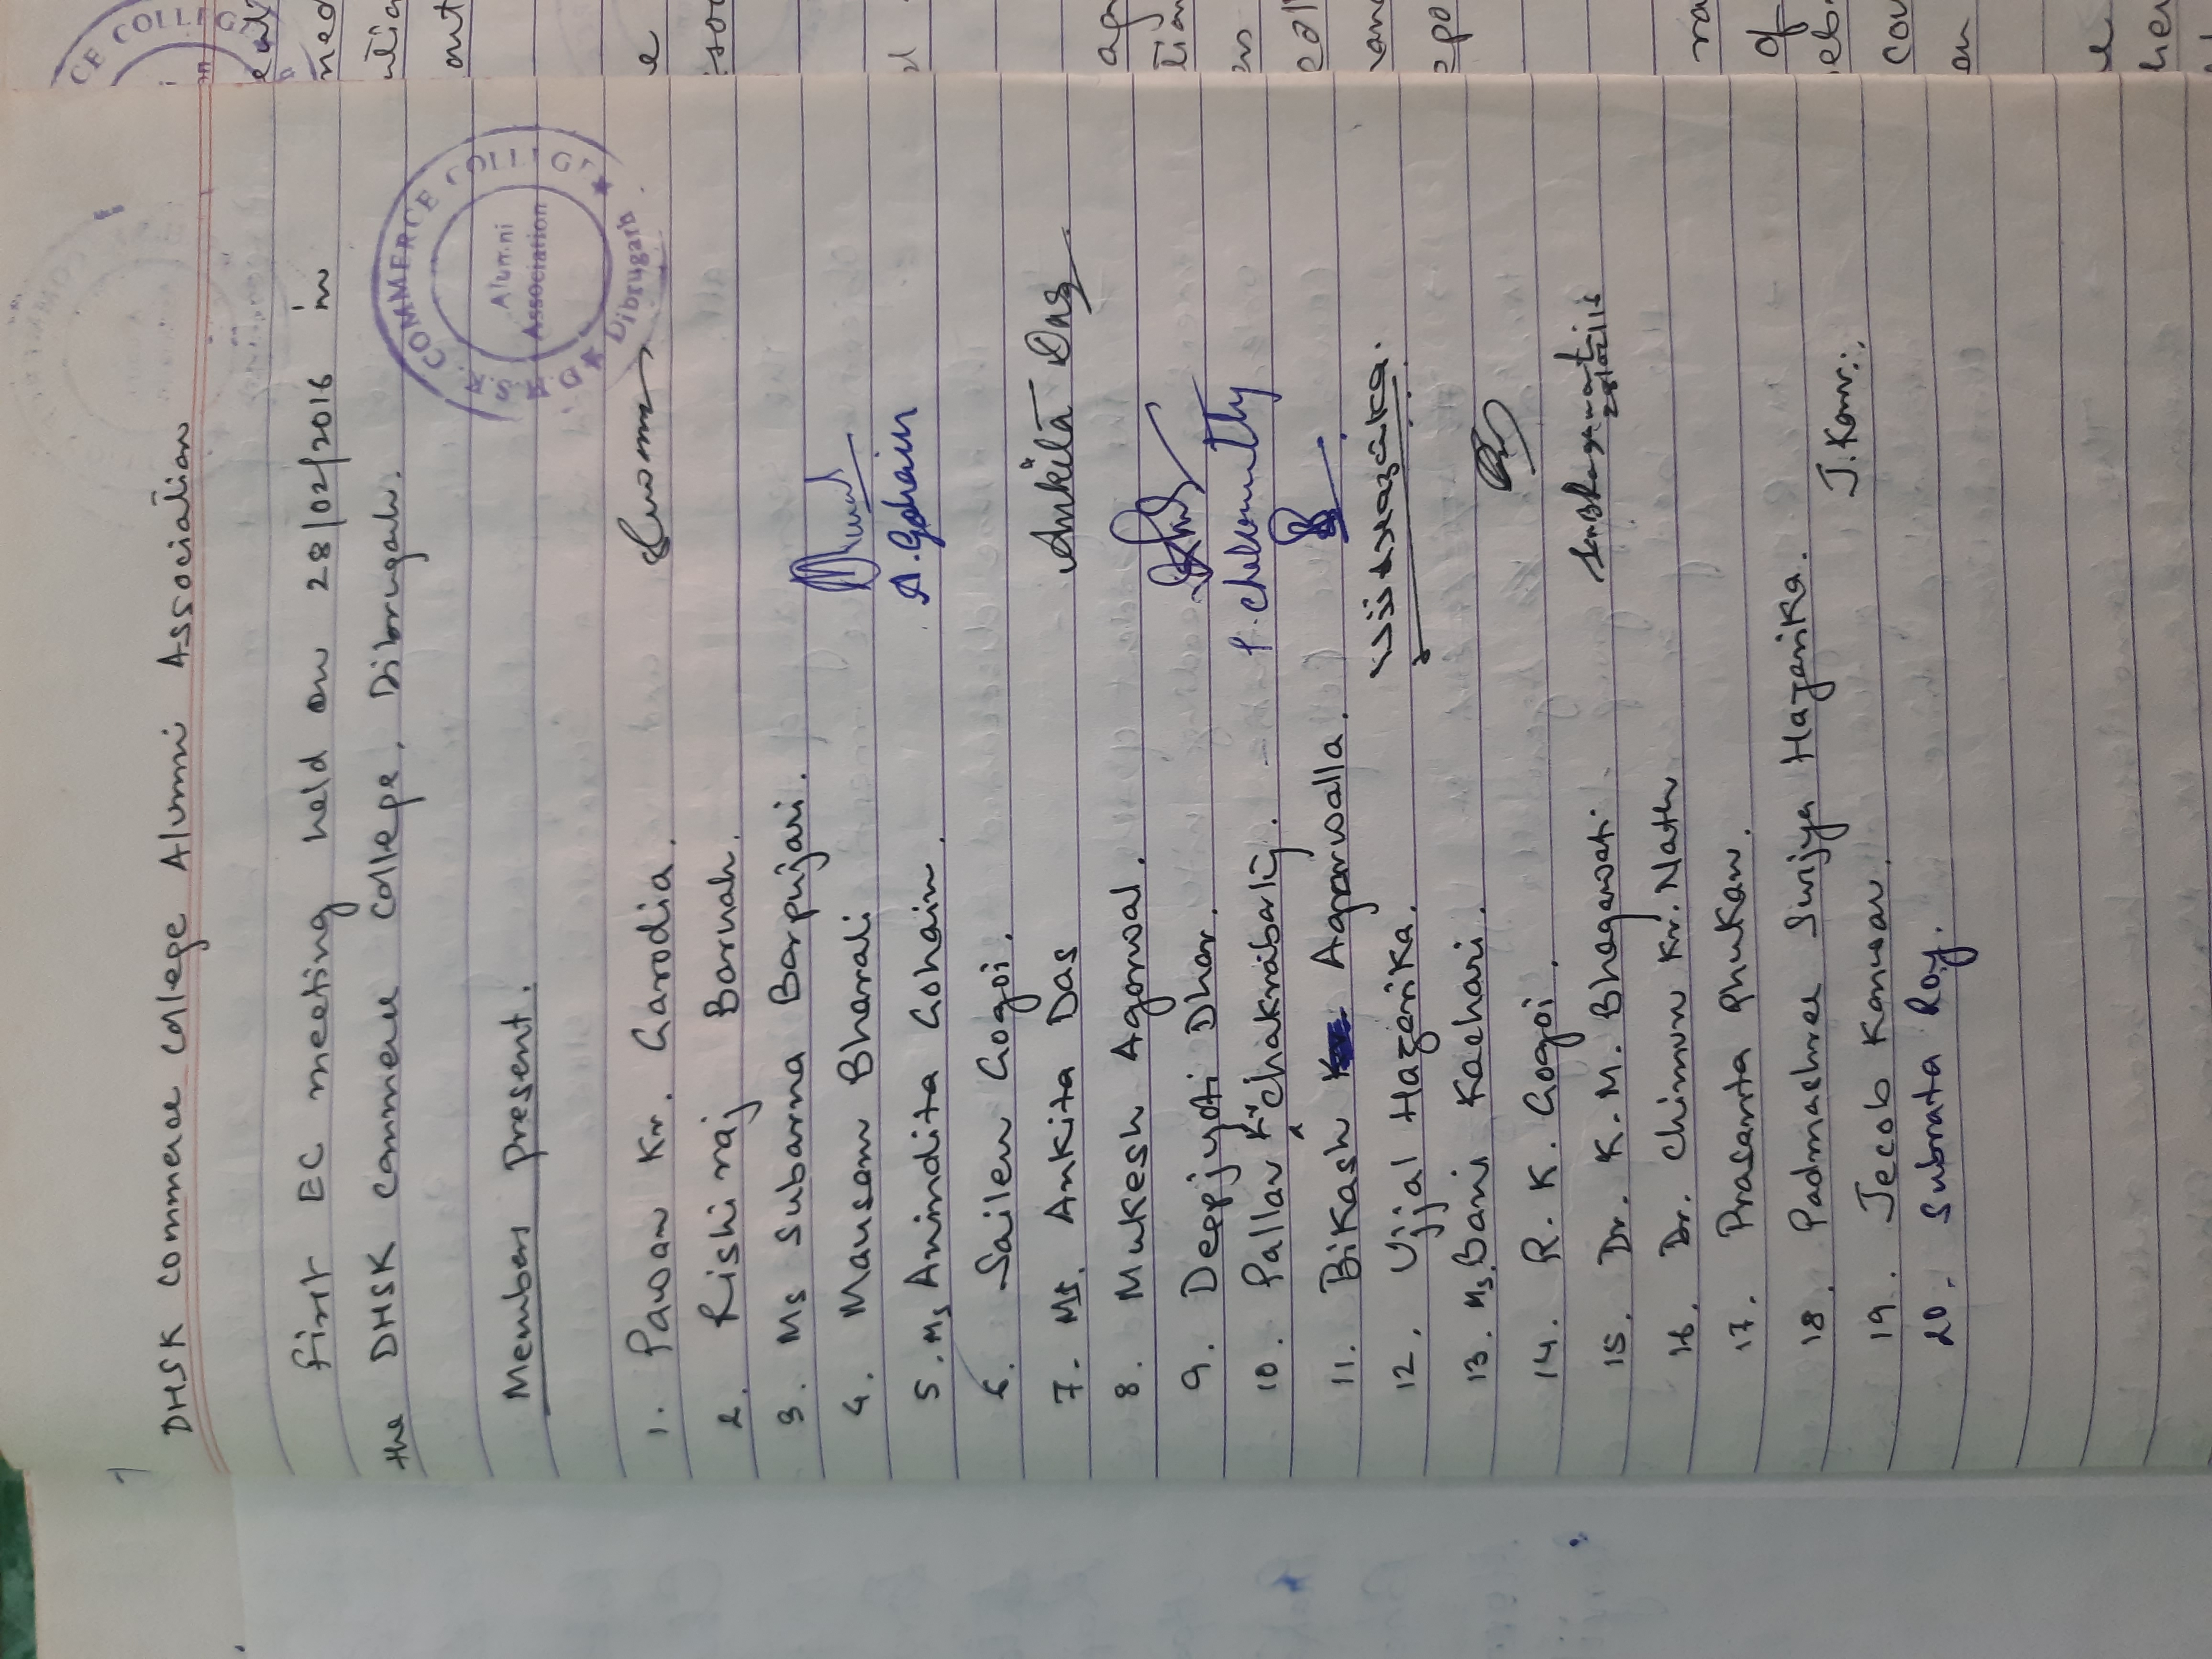 DHSK Commerce College Alumni Association
First EC meeting held on 28/02/2016 in
the DHSK Commerce College, Dibrugarh.
D.H.S.K. COMMERCE COLLEGE
Alumni
Association
Dibrugarh
Members present.
1. Pawan Kr. Garodia.
2. Rishi raj Boruah.
3. Ms Subarna Barpujari.
4. Mausam Bharali
5. Ms Anindita Gohain. A. Gohain
6. Sailen Gogoi.
7. Ms. Ankita Das Ankita Das
8. Mukesh Agarwal.
9. Deepjyoti Dhar.
10. Pallav Kr Chakrabarty. P. Chakrabarty
11. Bikash Agarwalla.
12. Ujjal Hazarika. Ujjal Hazarika.
13. Ms. Bani Kachari.
14. R. K. Gogoi.
15. Dr. K. M. Bhagawati
16. Dr. Chimun Kr. Nath
17. Prasanta Phukan.
18. Padmashree Surjya Hazarika.
19. Jecob Konwar. J. Konr.
20. Subrata Roy.
CE COLLEG